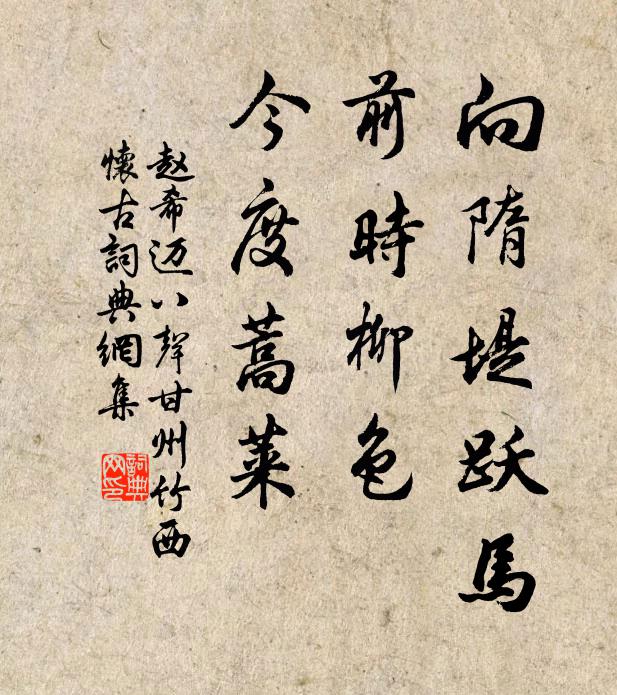 向隋堤跃馬
前時柳色
今度蒿萊
赵希迈八聲甘州竹西
懷古詞典網集
詞典
网印